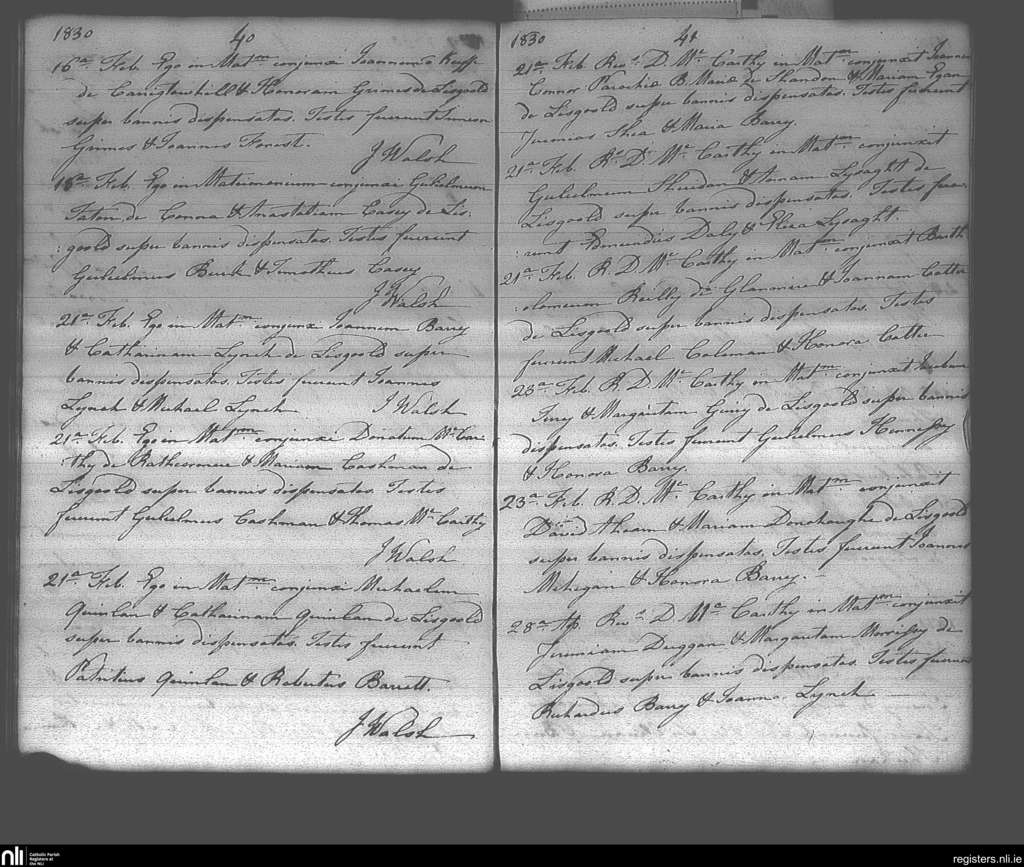 1830 40
16a Feb. Ego in Matm conjunxi Joannem O Keeffe
de Carrigtwohill & Honoram Grimes de Lisgoold
super bannis dispensatas. Testes fuerunt Simeon
Grimes & Joannes Forest. J Walsh
18a Feb. Ego in Matrimonium conjunxi Gulielmum
de Conna & Anastatiam Casey de Lis:
:goold super bannis dispensatas. Testes fuerunt
Gulielmus Burk & Timotheus Casey
J Walsh
21a Feb. Ego in Matm conjunxi Joannem Barry
& Catharinam Lynch de Lisgoold super
bannis dispensatas. Testes fuerunt Joannes
Lynch & Michael Lynch. J Walsh
21a Feb. Ego in Matm conjunxi Donatum McCar
:thy de & Mariam Cashman de
Lisgoold super bannis dispensatas. Testes
fuerunt Gulielmus Cashman & Thomas Mc Carthy
J Walsh
21a Feb. Ego in Matm conjunxi Michaelem
Quinlan & Catharinam Quinlan de Lisgoold
super bannis dispensatas. Testes fuerunt
Patritius Quinlan & Robertus Barrett.
J Walsh
1830 41
21a Feb. Revd D. Mc Carthy in Matm conjunxit Joannem
Connor Parochiæ B. Mariæ de Shandon & Mariam Egan
de Lisgoold super bannis dispensatas. Testes fuerunt
Jeremias Shea & Maria Barry.
21a Feb. Rd D. Mc Carthy in Matm conjunxit
Gulielmum Sheedan & Annam Lysaght de
Lisgoold super bannis dispensatas. Testes fue:
:runt Edmundus Daly & Eliza Lysaght.
21a Feb. R. D. Mc Carthy in Matm conjunxit Barth
:olomeum Reilly de Glanmire & Joannam Cotter
de Lisgoold super bannis dispensatas. Testes
fuerunt Michael Coleman & Honora Cotter
23a Feb. R. D. Mc Carthy in Matm conjunxit
& Margaritam Geary de Lisgoold super bannis
dispensatas. Testes fuerunt Gulielmus Hennessy
& Honora Barry.
23a Feb. R. D. Mc Carthy in Matm conjunxit
David Ahearn & Mariam Donohoughe de Lisgoold
super bannis dispensatas. Testes fuerunt Joannes
Mehigan & Honora Barry.
28a Ap. Revd D. Mc Carthy in Matm conjunxit
Jeremiam Duggan & Margaritam Morrissy de
Lisgoold super bannis dispensatas. Testes fuerunt
Richardus Barry & Joanna Lynch
nli Catholic Parish
Registers at
the NLI
registers.nli.ie